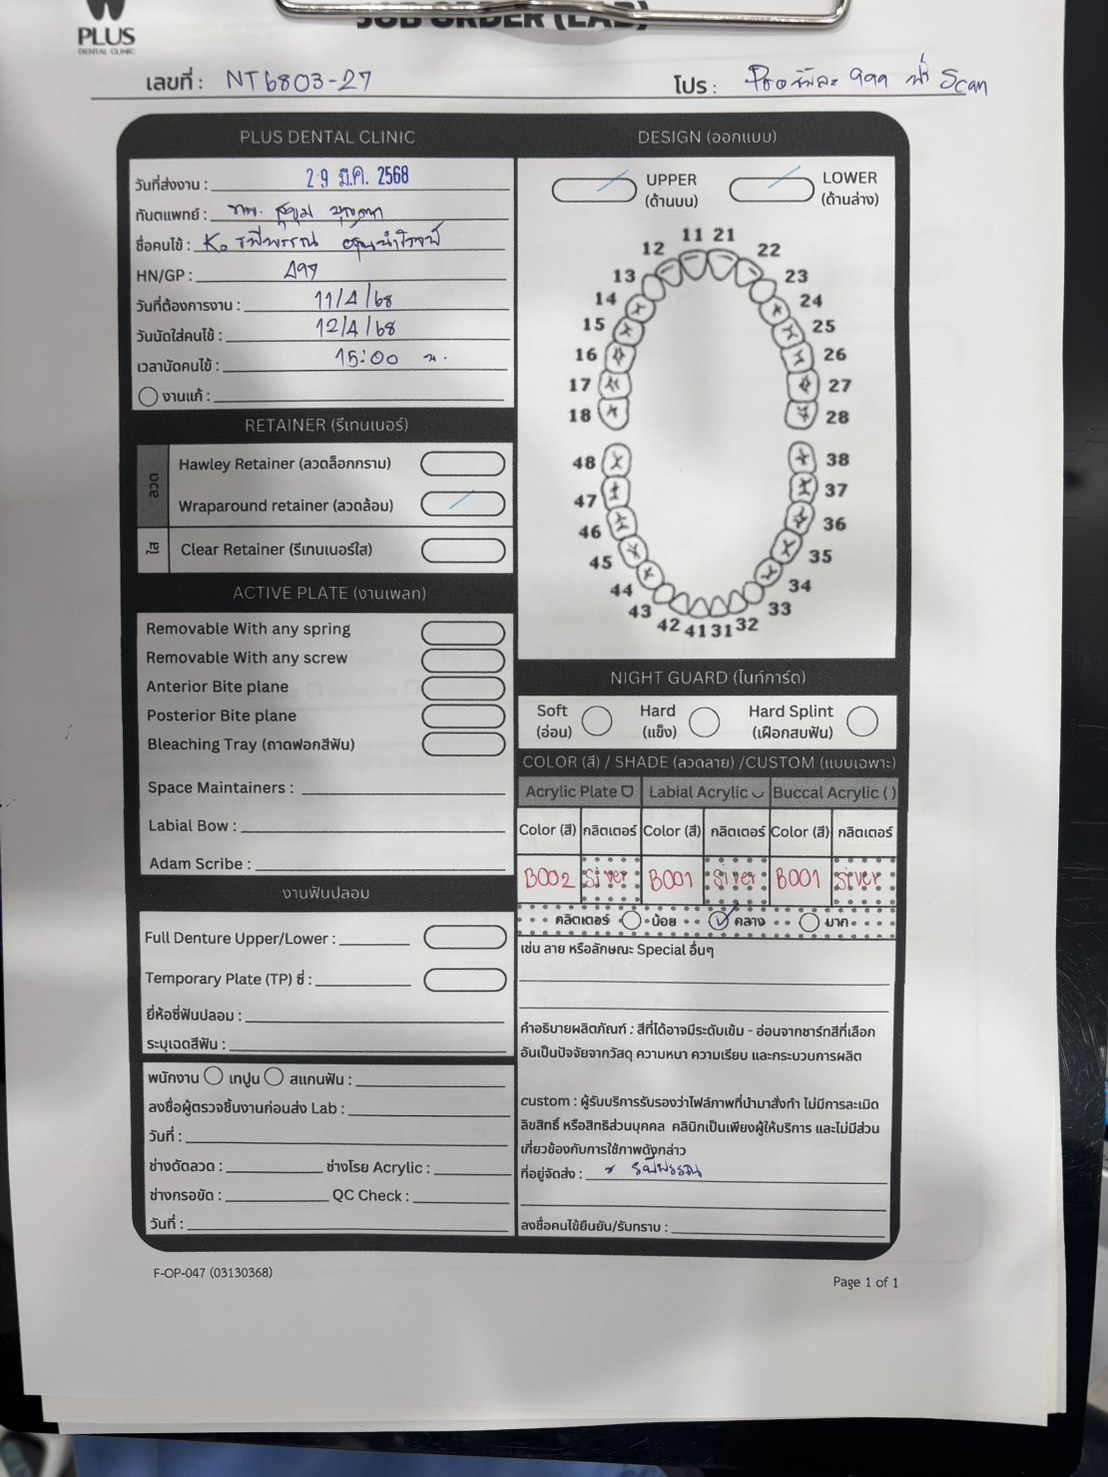 PLUS
DENTAL CLINIC
JOB ORDER (LAB)
เลขที่ : NT6803-27
โปร : 999 Scan
PLUS DENTAL CLINIC
วันที่ส่งงาน : 29 มี.ค. 2568
ทันตแพทย์ : ทพ.
ชื่อคนไข้ : K. รพีพรรณ
HN/GP :
วันที่ต้องการงาน : 11/4/68
วันนัดใส่คนไข้ : 12/4/68
เวลานัดคนไข้ : 15:00 น.
งานแก้ :
RETAINER (รีเทนเนอร์)
ลวด
Hawley Retainer (ลวดล็อกกราม)
Wraparound retainer (ลวดล้อม)
ใส
Clear Retainer (รีเทนเนอร์ใส)
ACTIVE PLATE (งานเพลท)
Removable With any spring
Removable With any screw
Anterior Bite plane
Posterior Bite plane
Bleaching Tray (ถาดฟอกสีฟัน)
Space Maintainers :
Labial Bow :
Adam Scribe :
งานฟันปลอม
Full Denture Upper/Lower :
Temporary Plate (TP) ซี่ :
ยี่ห้อซี่ฟันปลอม :
ระบุเฉดสีฟัน :
พนักงาน เทปูน สแกนฟัน :
ลงชื่อผู้ตรวจชิ้นงานก่อนส่ง Lab :
วันที่ :
ช่างดัดลวด : ช่างโรย Acrylic :
ช่างกรอขัด : QC Check :
วันที่ :
DESIGN (ออกแบบ)
UPPER (ด้านบน)
LOWER (ด้านล่าง)
11 21
12 22
13 23
14 24
15 25
16 26
17 27
18 28
48 38
47 37
46 36
45 35
44 34
43 33
42 41 31 32
NIGHT GUARD (ไนท์การ์ด)
Soft (อ่อน)
Hard (แข็ง)
Hard Splint (เฝือกสบฟัน)
COLOR (สี) / SHADE (ลวดลาย) /CUSTOM (แบบเฉพาะ)
Acrylic Plate Labial Acrylic Buccal Acrylic ( )
Color (สี) กลิตเตอร์ Color (สี) กลิตเตอร์ Color (สี) กลิตเตอร์
B002 Siver B001 Siver B001 Siver
กลิตเตอร์ น้อย กลาง มาก
เช่น ลาย หรือลักษณะ Special อื่นๆ
คำอธิบายผลิตภัณฑ์ : สีที่ได้อาจมีระดับเข้ม - อ่อนจากชาร์ทสีที่เลือก
อันเป็นปัจจัยจากวัสดุ ความหนา ความเรียบ และกระบวนการผลิต
custom : ผู้รับบริการรับรองว่าไฟล์ภาพที่นำมาสั่งทำ ไม่มีการละเมิด
ลิขสิทธิ์ หรือสิทธิส่วนบุคคล คลินิกเป็นเพียงผู้ให้บริการ และไม่มีส่วน
เกี่ยวข้องกับการใช้ภาพดังกล่าว
ที่อยู่จัดส่ง : รพีพรรณ
ลงชื่อคนไข้ยืนยัน/รับทราบ :
F-OP-047 (03130368)
Page 1 of 1